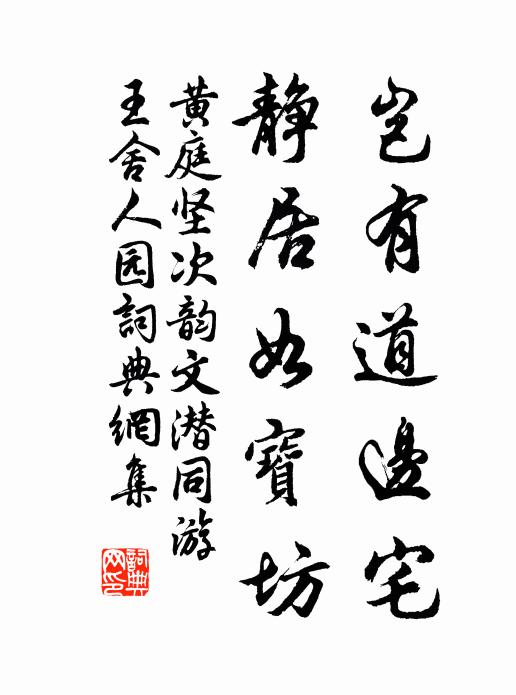 岂有道邊宅
静居如寶坊
黄庭坚次韵文潜同游
王舍人园詞典網集
詞典网印